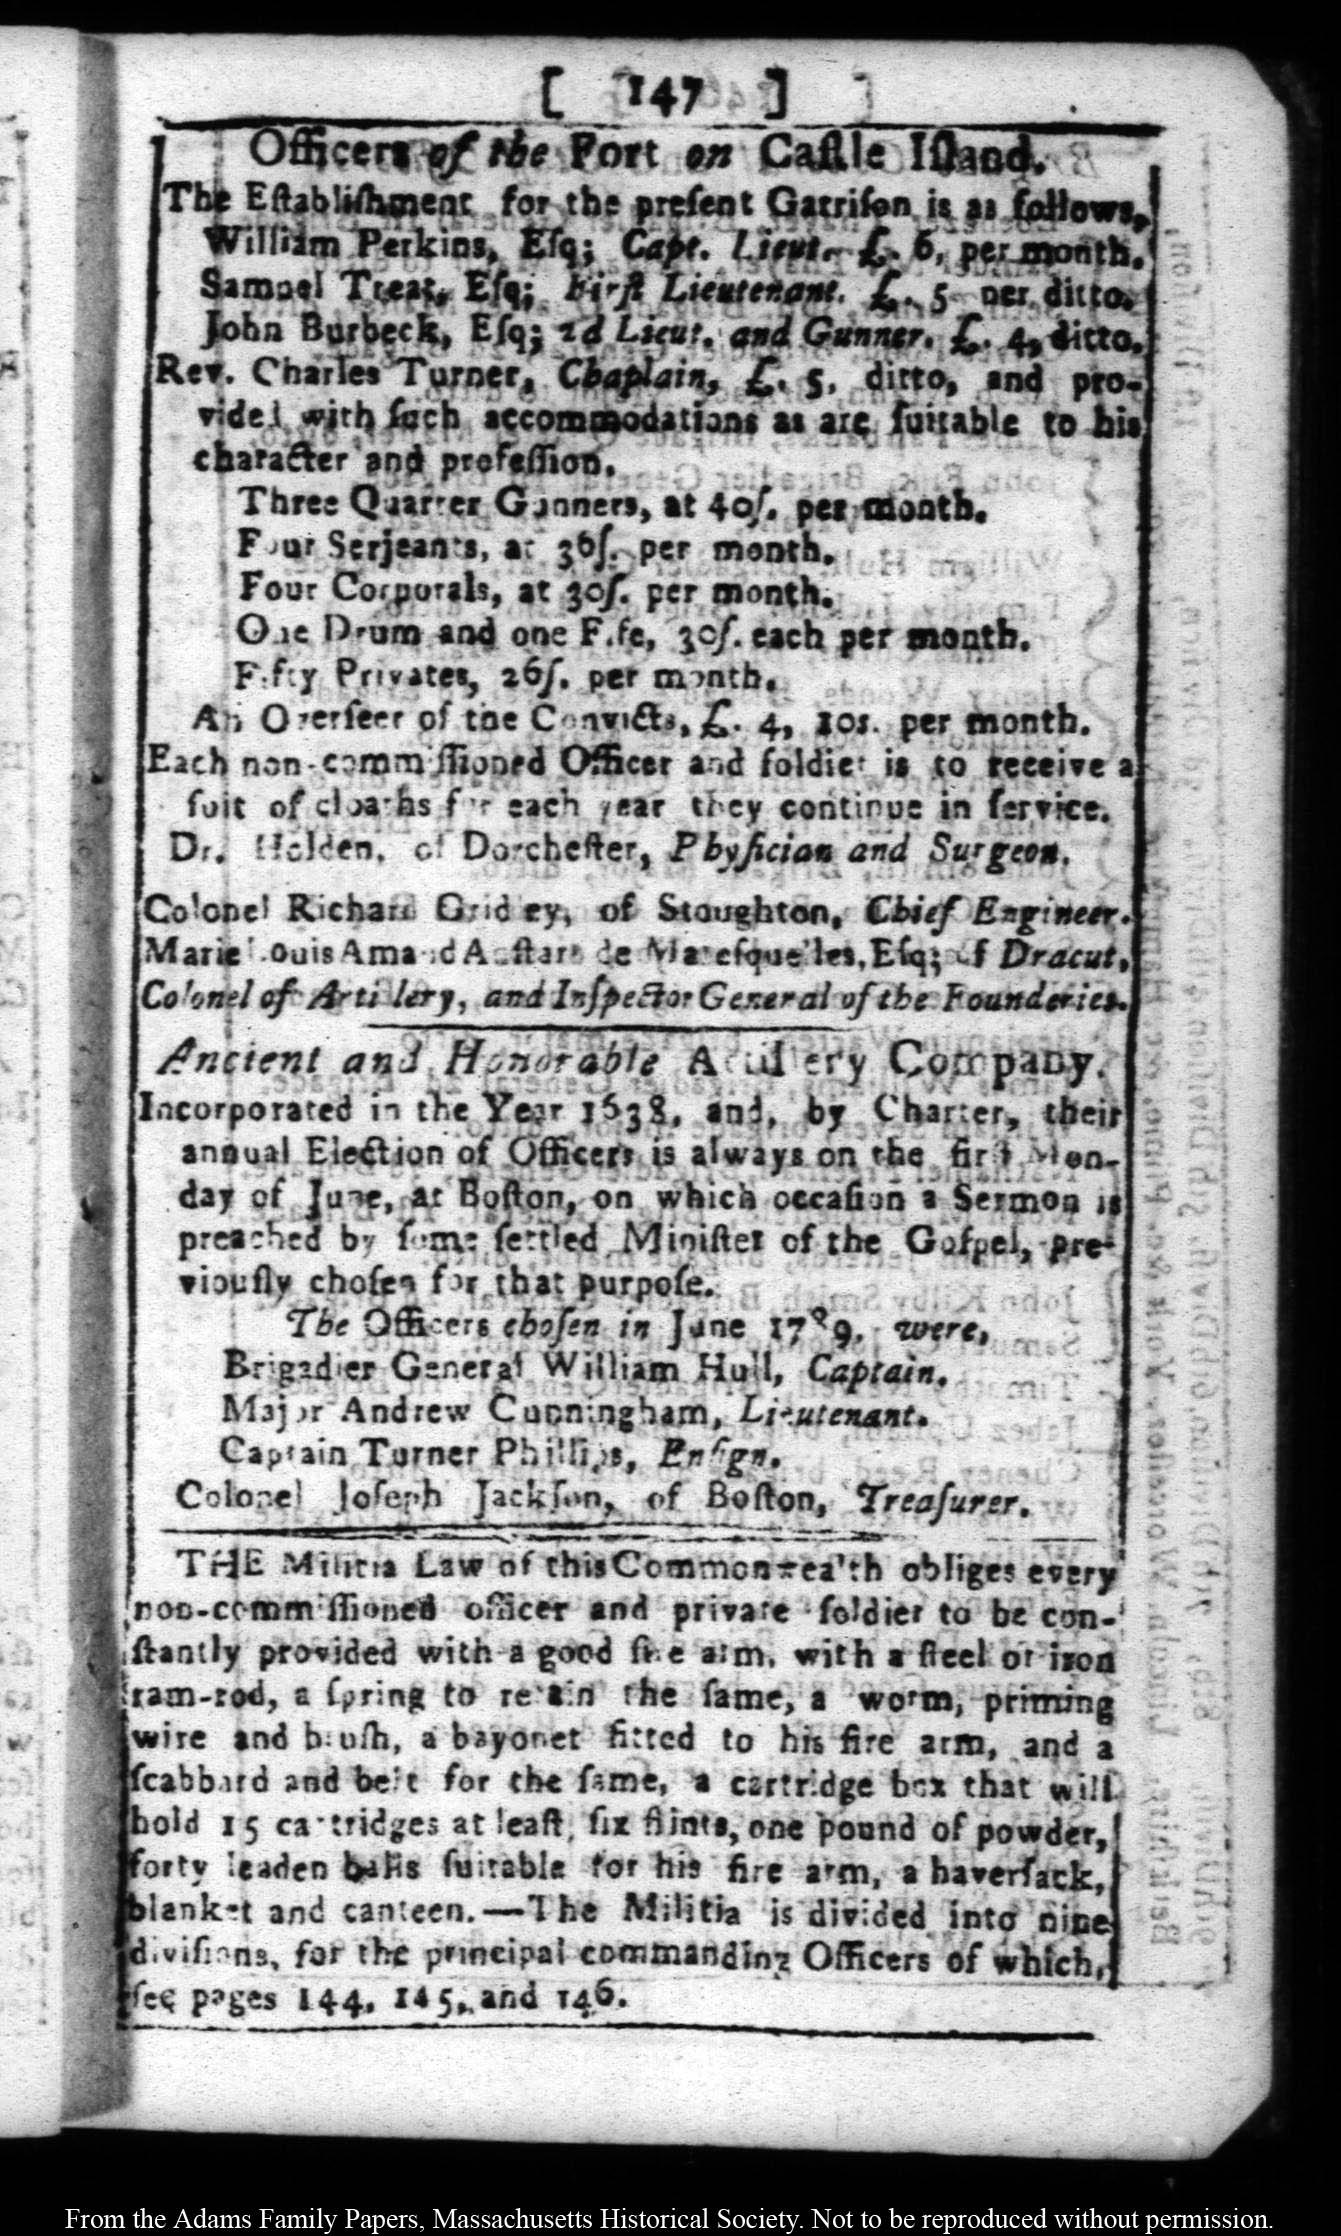 [ 147 ]
Officers of the Fort on Caſtle Iſland.
The Eſtabliſhment for the preſent Garriſon is as follows,
William Perkins, Eſq; Capt. Lieut. £. 6, per month.
Samuel Treat, Eſq; Firſt Lieutenant. £. 5 per ditto.
John Burbeck, Eſq; 2d Lieut. and Gunner. £. 4, ditto.
Rev. Charles Turner, Chaplain, £. 5. ditto, and pro-
vided with ſuch accommodations as are ſuitable to his
character and profeſſion.
Three Quarter Gunners, at 40ſ. per month.
Four Serjeants, at 36ſ. per month.
Four Corporals, at 30ſ. per month.
One Drum and one Fife, 30ſ. each per month.
Fifty Privates, 26ſ. per month.
An Overſeer of the Convicts, £. 4, 10s. per month.
Each non-commiſſioned Officer and ſoldier is to receive a
ſuit of cloaths for each year they continue in ſervice.
Dr. Holden, of Dorcheſter, Phyſician and Surgeon.
Colonel Richard Gridley, of Stoughton, Chief Engineer.
Marie Louis Amand Anſtart de Mareſquelles, Eſq; of Dracut,
Colonel of Artillery, and Inſpector General of the Founderies.
Ancient and Honorable Artillery Company.
Incorporated in the Year 1638, and, by Charter, their
annual Election of Officers is always on the firſt Mon-
day of June, at Boſton, on which occaſion a Sermon is
preached by ſome ſettled Miniſter of the Goſpel, pre-
viouſly choſen for that purpoſe.
The Officers choſen in June 1789. were,
Brigadier General William Hull, Captain.
Major Andrew Cunningham, Lieutenant.
Captain Turner Phillips, Enſign.
Colonel Joſeph Jackſon, of Boſton, Treaſurer.
THE Militia Law of this Commonwealth obliges every
non-commiſſioned officer and private ſoldier to be con-
ſtantly provided with a good fire arm, with a ſteel or iron
ram-rod, a ſpring to retain the ſame, a worm, priming
wire and bruſh, a bayonet fitted to his fire arm, and a
ſcabbard and belt for the ſame, a cartridge box that will
hold 15 cartridges at leaſt, ſix flints, one pound of powder,
forty leaden balls ſuitable for his fire arm, a haverſack,
blanket and canteen.—The Militia is divided into nine
diviſions, for the principal commanding Officers of which,
ſee pages 144, 145, and 146.
From the Adams Family Papers, Massachusetts Historical Society. Not to be reproduced without permission.